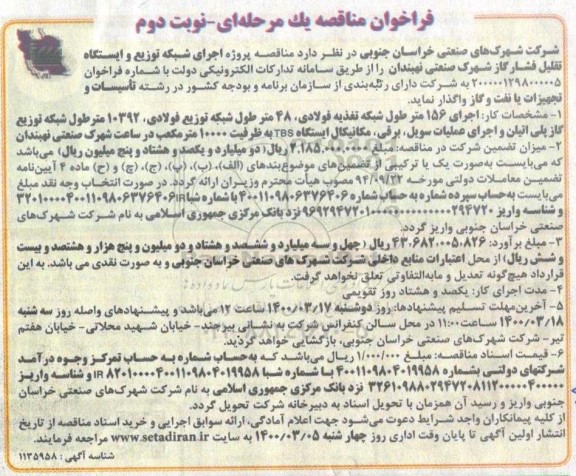 فراخوان مناقصه یك مرحله‌ای-نوبت دوم
شرکت شهرک‌های صنعتی خراسان جنوبی در نظر دارد مناقصه پروژه اجرای شبکه توزیع و ایستگاه
تقلیل فشار گاز شهرک صنعتی نهبندان را از طریق سامانه تدارکات الکترونیکی دولت با شماره فراخوان
۲۰۰۰۰۰۱۲۹۸۰۰۰۰۰۵ به شرکت دارای رتبه‌بندی از سازمان برنامه و بودجه کشور در رشته تأسیسات و
تجهیزات یا نفت و گاز واگذار نماید.
۱- مشخصات کار: اجرای ۱۵۶ متر طول شبکه تغذیه فولادی، ۴۸ متر طول شبکه توزیع فولادی، ۱۰۳۹۲ مترطول شبکه توزیع
گاز پلی اتیان و اجرای عملیات سویل، برقی، مکانیکال ایستگاه TBS به ظرفیت ۱۰۰۰۰ مترمکعب در ساعت شهرک صنعتی نهبندان
۲- میزان تضمین شرکت در مناقصه: مبلغ ۲.۱۸۵.۰۰۰.۰۰۰ ریال (دو میلیارد و یکصد و هشتاد و پنج میلیون ریال) می‌باشد
که می‌بایست به‌صورت یک یا ترکیبی از تضمین‌های موضوع‌بندهای (الف)، (ب)، (پ)، (ج)، (چ) و (ح) ماده ۴ آیین‌نامه
تضمین معاملات دولتی مورخه ۹۴/۰۹/۲۲ مصوب هیأت محترم وزیران ارائه گردد. در صورت انتخاب وجه نقد مبلغ
می‌بایست به‌حساب سپرده شماره به حساب شماره ۴۰۰۱۱۰۹۸۰۶۳۷۶۴۰۶ با شماره شبا IR
و شناسه واریز نزد بانک مرکزی جمهوری اسلامی به نام شرکت شهرک‌های
صنعتی خراسان جنوبی واریز گردد.
۳- مبلغ برآورد: ۴۳.۶۸۲.۰۰۵.۸۲۶ ریال (چهل و سه میلیارد و ششصد و هشتاد و دو میلیون و پنج هزار و هشتصد و بیست
و شش ریال) از محل اعتبارات منابع داخلی شرکت شهرک های صنعتی خراسان جنوبی و به صورت نقدی می باشد. به این
قرارداد هیچ‌گونه تعدیل و مابه‌التفاوتی تعلق نخواهد گرفت.
۴- مدت اجرای کار: یکصد و هشتاد روز تقویمی
۵- آخرین‌مهلت تسلیم پیشنهادها: روز دوشنبه ۱۴۰۰/۰۳/۱۷ ساعت ۱۲ می‌باشد و پیشنهادهای واصله روز سه شنبه
۱۴۰۰/۰۳/۱۸ ساعت۱۱:۰۰ در محل سالن کنفرانس شرکت به نشانی بیرجند- خیابان شهید محلاتی- خیابان هفتم
تیر- شرکت شهرک‌های صنعتی خراسان جنوبی، بازگشایی خواهد گردید.
۶- قیمت اسناد مناقصه: مبلغ ۱/۰۰۰/۰۰۰ ریال می‌باشد که به‌حساب شماره به حساب تمرکز وجوه درآمد
شرکتهای دولتی بشماره ۴۰۰۱۱۰۹۸۰۴۰۱۹۹۵۸ با شماره شبا IR و شناسه واریز
نزد بانک مرکزی جمهوری اسلامی به نام شرکت شهرک‌های صنعتی خراسان
جنوبی واریز و رسید آن همزمان با تحویل اسناد به دبیرخانه شرکت تحویل گردد.
از کلیه پیمانکاران واجد شرایط دعوت می‌شود جهت اعلام آمادگی، ارائه سوابق اجرایی و خرید اسناد مناقصه از تاریخ
انتشار اولین آگهی تا پایان وقت اداری روز چهار شنبه ۱۴۰۰/۰۳/۰۵ به سایت www.setadiran.ir مراجعه فرمایند.
شناسه آگهی : ۱۱۳۵۹۵۸